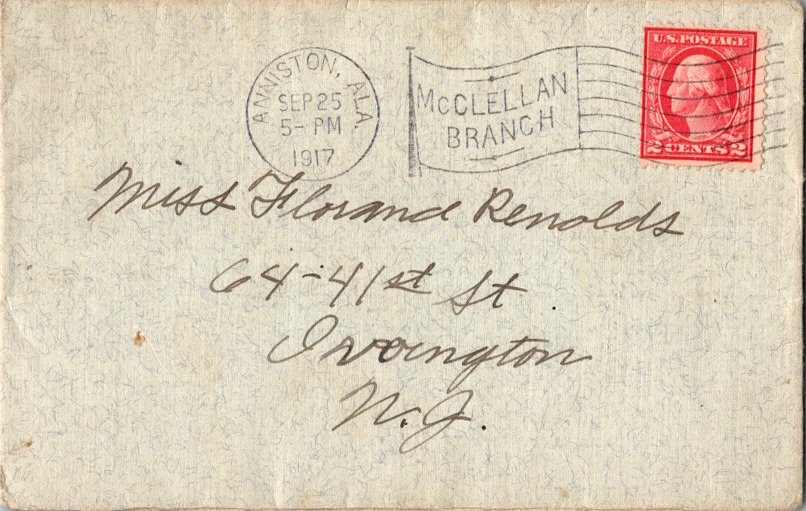 ANNISTON, ALA.
SEP 25
5- PM
1917
McCLELLAN
BRANCH
U.S. POSTAGE
2 CENTS 2
Miss Florand Renolds
64-41st St.
Irvington
N.J.